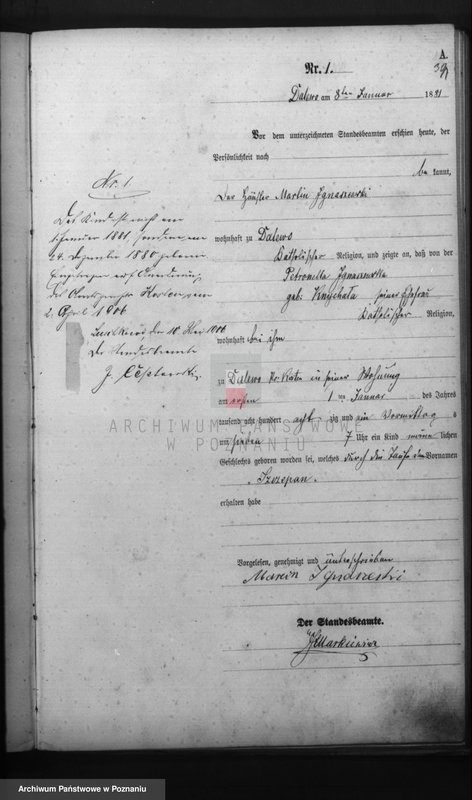 A.
Nr. 1.
Dalewo am 3ten Januar 1881
Vor dem unterzeichneten Standesbeamten erschien heute, der
Persönlichkeit nach
bekannt,
Der Häusler Martin Ignaszewski
wohnhaft zu Dalewo
Katholischer Religion, und zeigte an, daß von der
Petronella Ignaszewska
geb: Knychała, seiner Ehefrau
Katholischer Religion,
wohnhaft bei ihm
zu Dalewo in seiner Wohnung
am ersten 1 ten Januar des Jahres
tausend acht hundert acht zig und ein Vormittag s
um sieben 7 Uhr ein Kind männlichen
Geschlechts geboren worden sei, welches durch die Taufe den Vornamen
Szczepan.
erhalten habe
Vorgelesen, genehmigt und unterschrieben
Marcin Ignaszeski
Der Standesbeamte.
Markiewicz
Nr. 1
Das Kind ist nicht am
1. Januar 1881, sondern am
24. Dezember 1880 geboren.
Eingetragen auf Anordnung
des Amtsgerichts vom
2. April 1906
den 10. 1906
Der Standesbeamte
ARCHIWUM PAŃSTWOWE
W POZNANIU
Archiwum Państwowe w Poznaniu